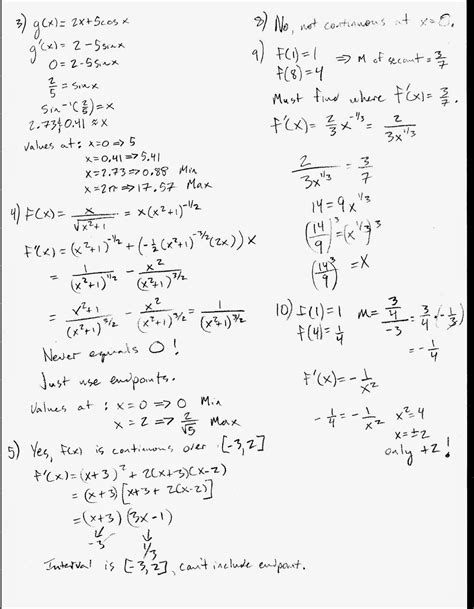 3) g(x) = 2x+5cosx
g'(x) = 2-5sinx
0 = 2-5sinx
2/5 = sinx
sin⁻¹(2/5) = x
2.73 & 0.41 ≈ x
Values at: x=0 ⇒ 5
x=0.41 ⇒ 5.41
x=2.73 ⇒ 0.88 Min
x=2π ⇒ 17.57 Max
4) F(x) = x/√(x²+1) = x(x²+1)^(-1/2)
F'(x) = (x²+1)^(-1/2) + (-1/2(x²+1)^(-3/2)(2x))x
= 1/(x²+1)^(1/2) - x²/(x²+1)^(3/2)
= (x²+1)/(x²+1)^(3/2) - x²/(x²+1)^(3/2) = 1/(x²+1)^(3/2)
Never equals 0!
Just use endpoints.
Values at: x=0 ⇒ 0 Min
x=2 ⇒ 2/√5 Max
5) Yes, F(x) is continuous over [-3,2]
F'(x) = (x+3)² + 2(x+3)(x-2)
= (x+3)[x+3+2(x-2)]
= (x+3)(3x-1)
-3 1/3
Interval is [-3,2], can't include endpoint.
8) No, not continuous at x=0.
9) F(1)=1
F(8)=4 ⇒ M of secant = 3/7
Must find where F'(x) = 3/7.
F'(x) = 2/3 x^(-1/3) = 2/(3x^(1/3))
2/(3x^(1/3)) = 3/7
14 = 9x^(1/3)
(14/9)³ = (x^(1/3))³
(14/9)³ = x
10) F(1)=1 M = (3/4)/-3 = 3/4·(-1/3)
F(4)=1/4
= -1/4
F'(x) = -1/x²
-1/4 = -1/x² x²=4
x=±2
only +2!